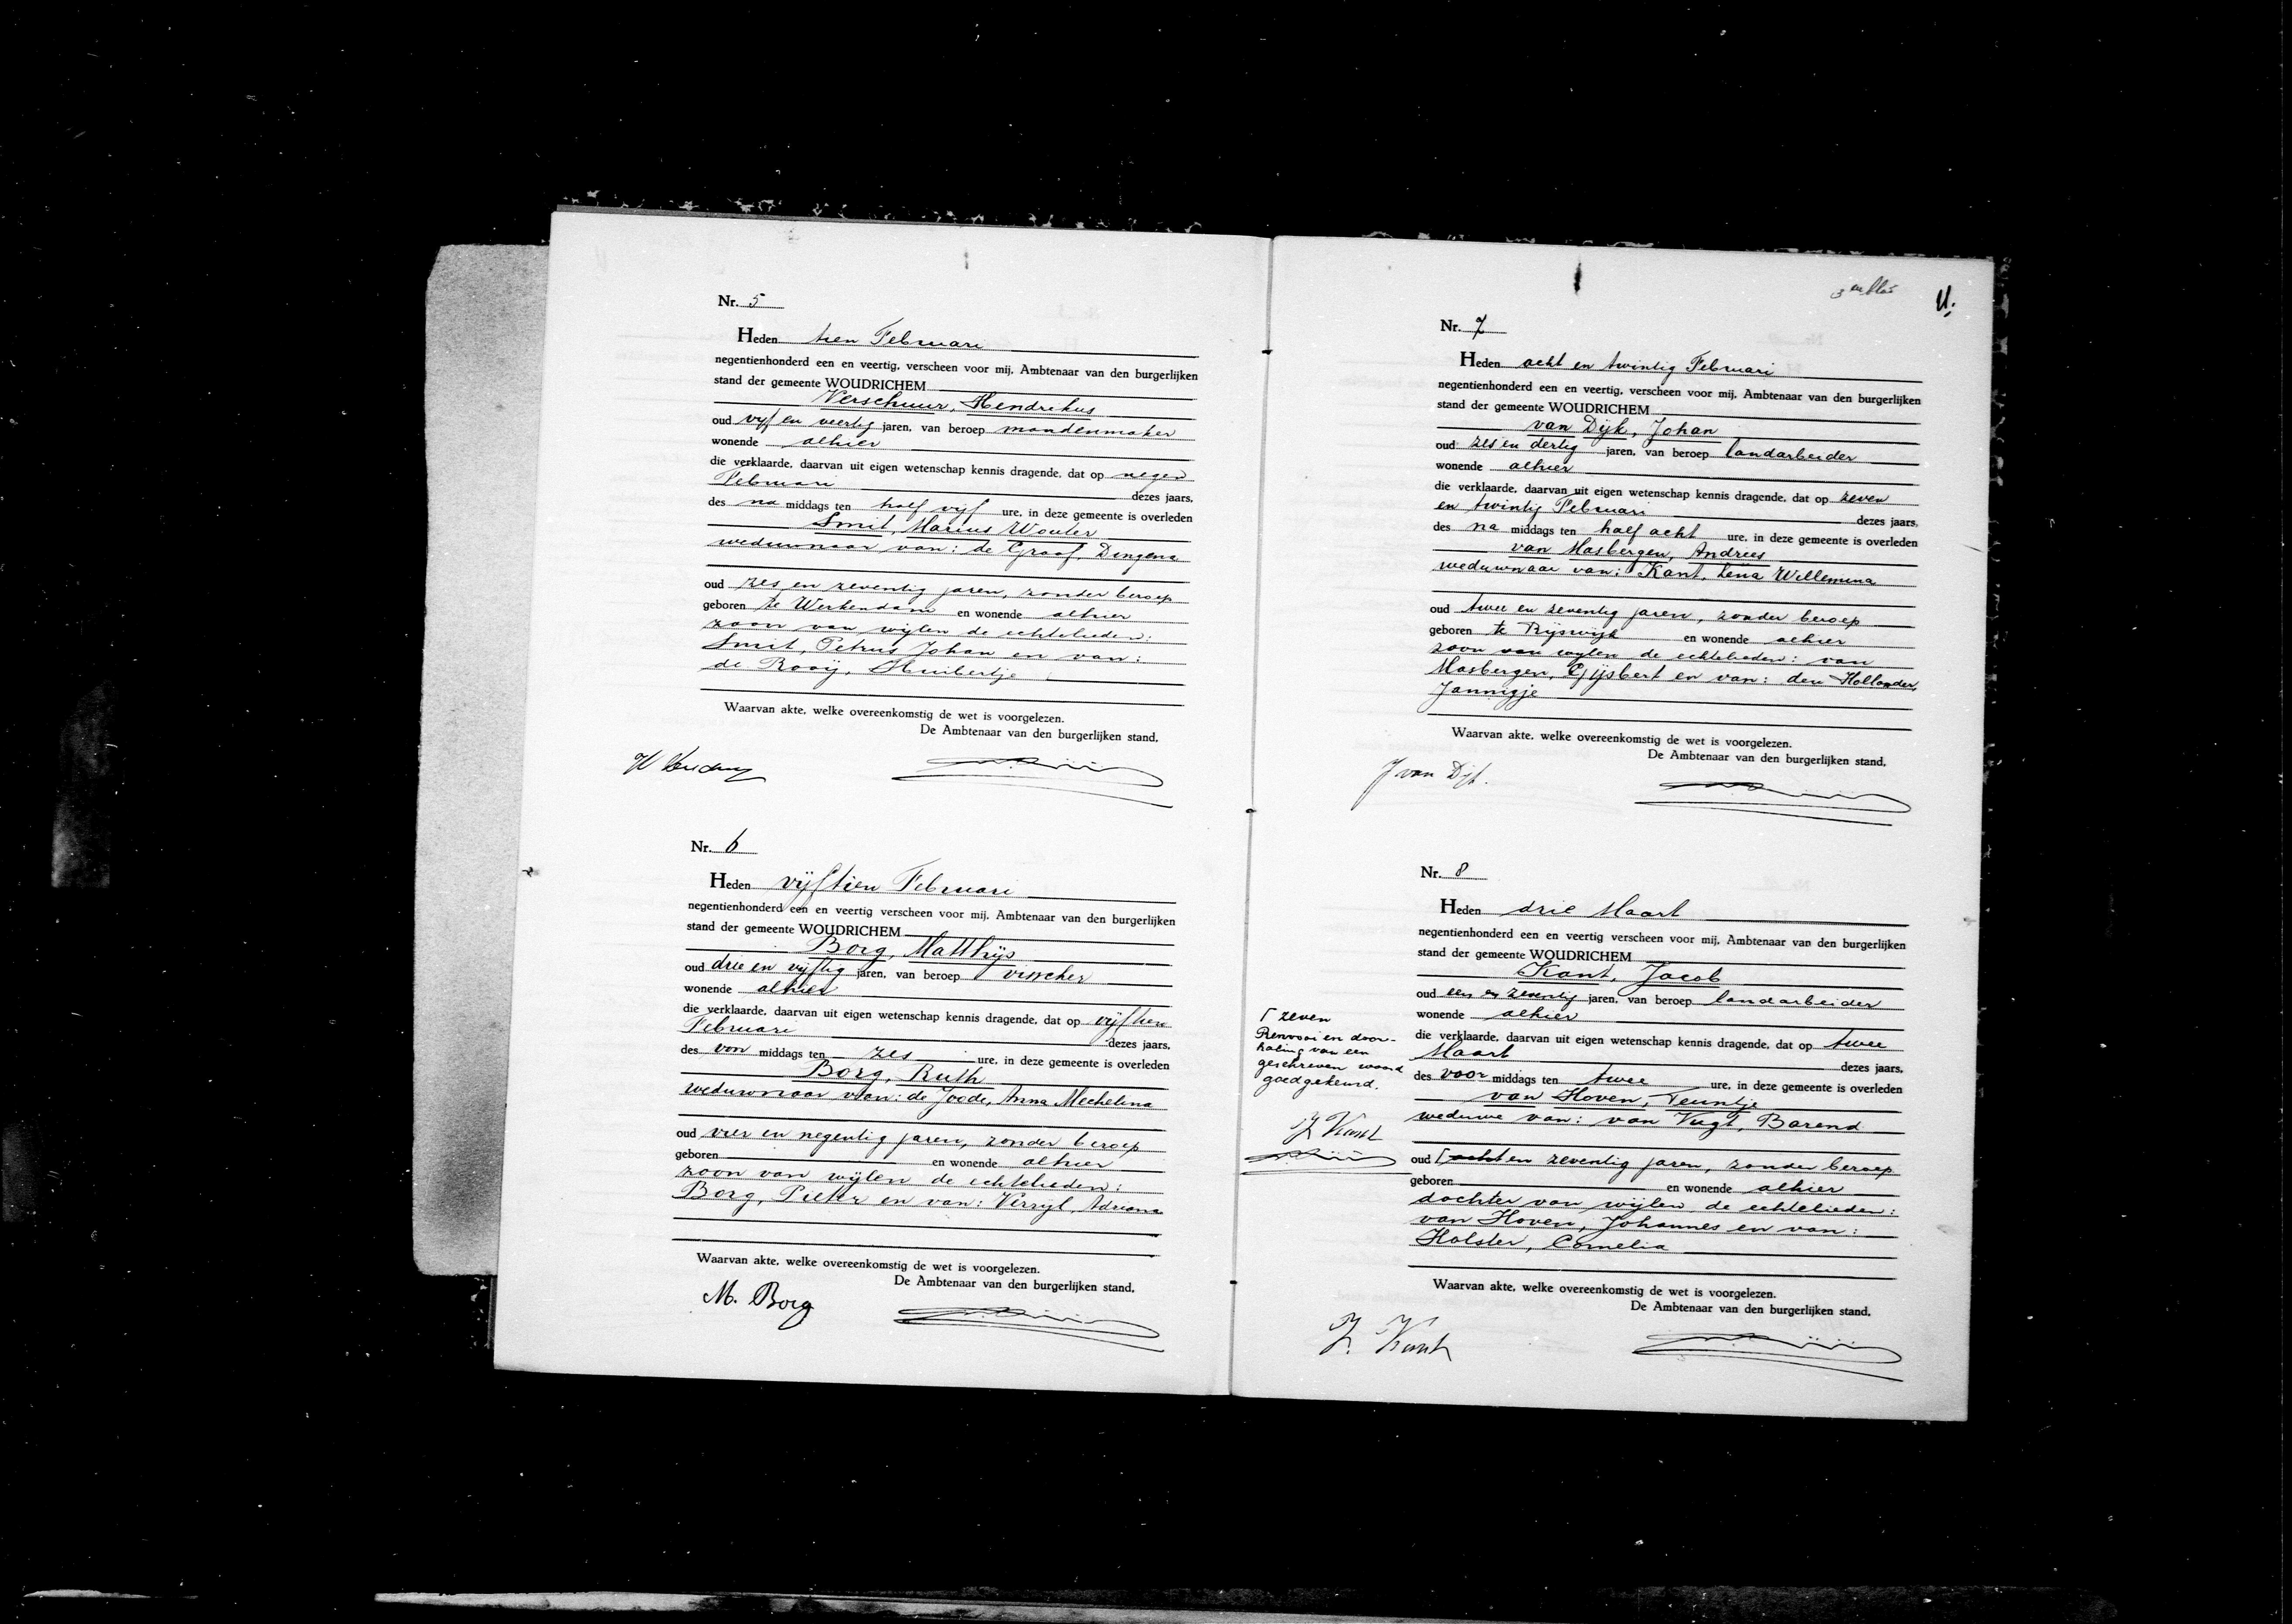 Nr. 5
Heden tien Februari
negentienhonderd een en veertig, verscheen voor mij, Ambtenaar van den burgerlijken
stand der gemeente WOUDRICHEM
Verschuur, Hendrikus
oud vijf en veertig jaren, van beroep mandenmaker
wonende alhier
die verklaarde, daarvan uit eigen wetenschap kennis dragende, dat op negen
Februari dezes jaars,
des na middags ten half vijf ure, in deze gemeente is overleden
Smit, Marinus Wouter
weduwnaar van: de Graaf, Dingena
oud zes en zeventig jaren, zonder beroep
geboren te Werkendam en wonende alhier
zoon van wijlen de echtelieden:
Smit, Petrus Johan en van:
de Rooij, Huibertje
Waarvan akte, welke overeenkomstig de wet is voorgelezen.
De Ambtenaar van den burgerlijken stand,
Nr. 6
Heden vijftien Februari
negentienhonderd een en veertig verscheen voor mij, Ambtenaar van den burgerlijken
stand der gemeente WOUDRICHEM
Borg, Matthijs
oud drie en vijftig jaren, van beroep visscher
wonende alhier
die verklaarde, daarvan uit eigen wetenschap kennis dragende, dat op vijftien
Februari dezes jaars,
des voor middags ten zes ure, in deze gemeente is overleden
Borg, Ruth
weduwnaar van: de Joode, Anna Mechelina
oud vier en negentig jaren, zonder beroep
geboren en wonende alhier
zoon van wijlen de echtelieden:
Borg, Pieter en van: Versijl, Adriana
Waarvan akte, welke overeenkomstig de wet is voorgelezen.
De Ambtenaar van den burgerlijken stand,
M. Borg
U.
Nr. 7
Heden acht en twintig Februari
negentienhonderd een en veertig, verscheen voor mij, Ambtenaar van den burgerlijken
stand der gemeente WOUDRICHEM
van Dijk, Johan
oud zes en dertig jaren, van beroep landarbeider
wonende alhier
die verklaarde, daarvan uit eigen wetenschap kennis dragende, dat op zeven
en twintig Februari dezes jaars,
des na middags ten half acht ure, in deze gemeente is overleden
van Masbergen, Andries
weduwnaar van: Kant, Lena Willemina
oud twee en zeventig jaren, zonder beroep
geboren te Rijswijk en wonende alhier
zoon van wijlen de echtelieden: van
Masbergen, Gijsbert en van: den Hollander,
Jannigje
Waarvan akte, welke overeenkomstig de wet is voorgelezen.
De Ambtenaar van den burgerlijken stand,
J van Dijk.
Nr. 8
Heden drie Maart
negentienhonderd een en veertig verscheen voor mij, Ambtenaar van den burgerlijken
stand der gemeente WOUDRICHEM
Kant, Jacob
oud een en zeventig jaren, van beroep landarbeider
wonende alhier
die verklaarde, daarvan uit eigen wetenschap kennis dragende, dat op twee
Maart dezes jaars,
des voor middags ten twee ure, in deze gemeente is overleden
van Hoven, Teuntje
weduwe van: van Vugt, Barend
oud ⌈ acht en zeventig jaren, zonder beroep
geboren en wonende alhier
dochter van wijlen de echtelieden:
van Hoven, Johannes en van:
Holster, Cornelia
Waarvan akte, welke overeenkomstig de wet is voorgelezen.
De Ambtenaar van den burgerlijken stand,
J. Kant
⌈ zeven
Renvooi en door-
haling van een
geschreven woord
goedgekeurd.
J Kant